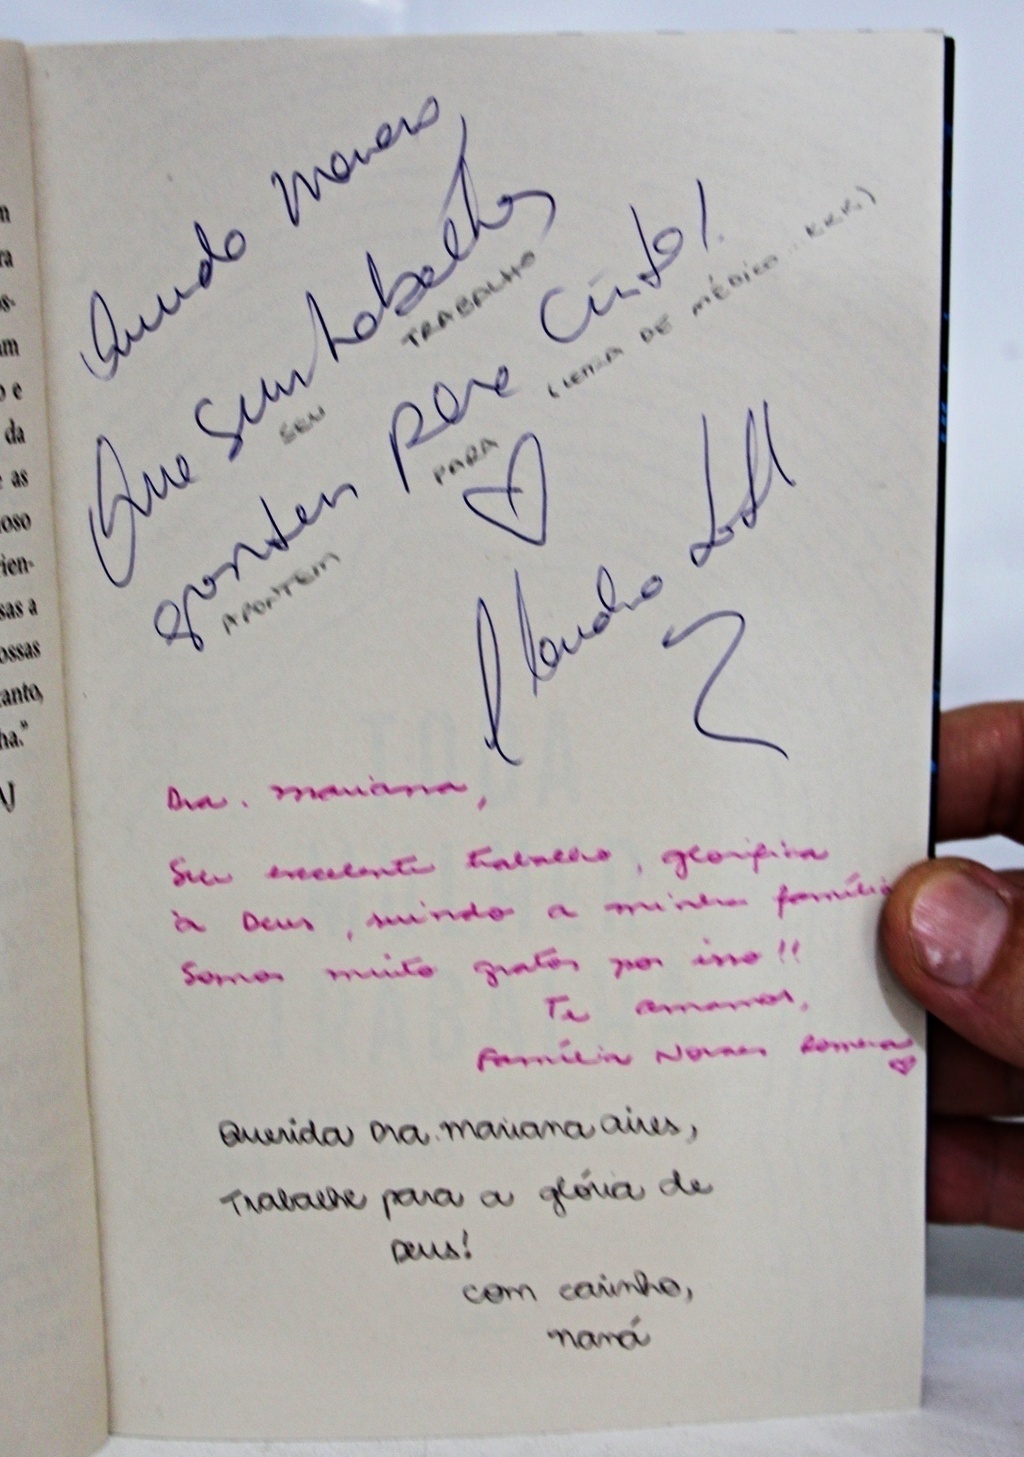 n
ra
os-
am
o e
da
e as
loso
rien-
sas a
ossas
tanto,
ha."
AJ
Querida Mariana,
Que seus trabalhos
TRABALHO
SEU
apontem para Cristo!
PARA
APONTEM
(LETRA DE MÉDICO... KKK)
Claudio
Dra. Mariana,
Seu excelente trabalho, glorifica
à Deus, servindo a minha família
Somos muito gratos por isso!!
Te amamos,
Família Novaes Romera
Querida Dra. Mariana Aires,
Trabalhe para a glória de
Deus!
com carinho,
Naná